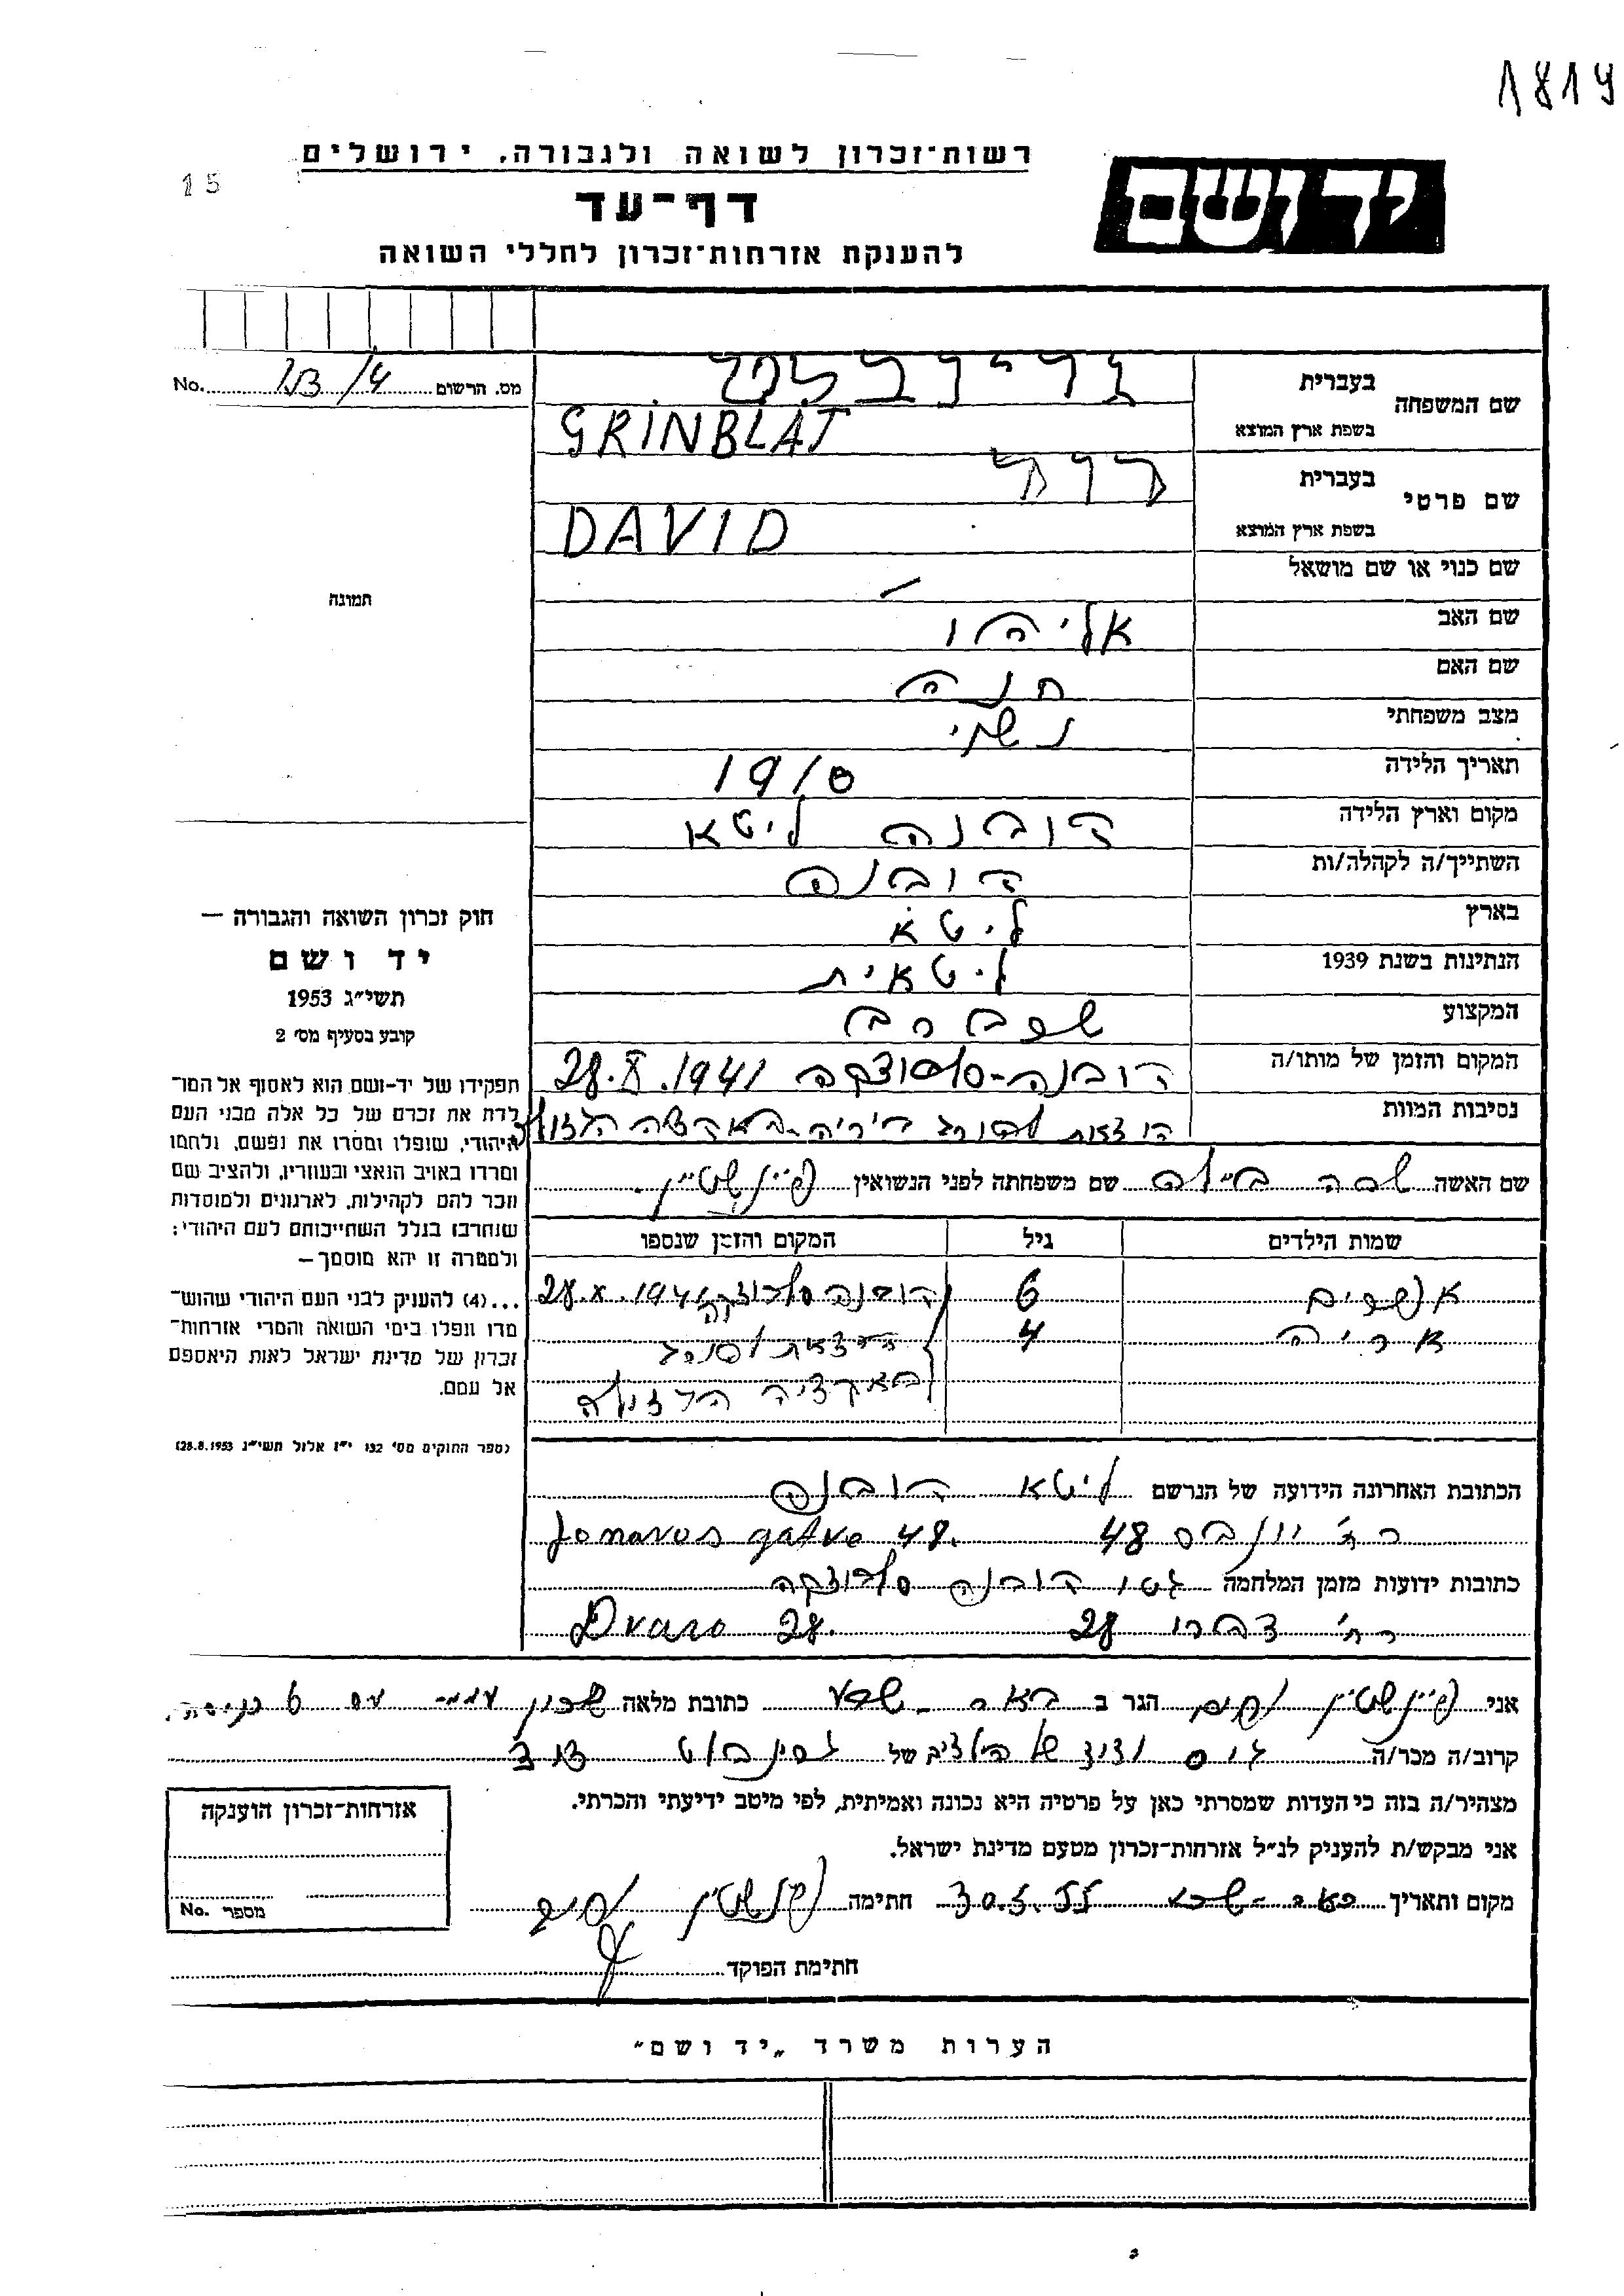 1819
רשות־זכרון לשואה ולגבורה. ירושלים
15
יד ושם
דף־עד
להענקת אזרחות־זכרון לחללי השואה
שם המשפחה בעברית גרינבלט
בשפת ארץ המוצא GRINBLAT
מס. הרשום No.
שם פרטי בעברית דוד
בשפת ארץ המוצא DAVID
שם כנוי או שם מושאל –
תמונה
שם האב אליהו
שם האם חנה
מצב משפחתי נשוי
תאריך הלידה 1910
מקום וארץ הלידה קובנה ליטא
השתייך/ה לקהלה/ות קובנה
בארץ ליטא
הנתינות בשנת 1939 ליטאית
המקצוע
המקום והזמן של מותו/ה קובנה-סלבודקה 28.X.1941
נסיבות המוות הוצאת להורג ביריה באקציה הגדולה
חוק זכרון השואה והגבורה —
יד ושם
תשי״ג 1953
קובע בסעיף מס׳ 2
תפקידו של יד־ושם הוא לאסוף אל המו־
לדת את זכרם של כל אלה מבני העם
היהודי, שנפלו ומסרו את נפשם, ולחמו
ומרדו באויב הנאצי ובעוזריו, ולהציב שם
וזכר להם לקהילות, לארגונים ולמוסדות
שנחרבו בגלל השתייכותם לעם היהודי;
ולמטרה זו יהא מוסמך —
...(4) להעניק לבני העם היהודי שהוש־
מדו ונפלו בימי השואה והמרי אזרחות־
זכרון של מדינת ישראל לאות היאספם
אל עמם.
(ספר החוקים מס׳ 132 י״ז אלול תשי״ג 28.8.1953)
שם האשה שם משפחתה לפני הנשואין פיינשטיין
שמות הילדים גיל המקום והזמן שנספו
אפרים 6 קובנה סלבודקה 28.X.1941
אריה 4 הוצאת להורג
באקציה הגדולה
הכתובת האחרונה הידועה של הנרשם ליטא קובנה
רח׳ יונבס 48 Jonavos gatve 48.
כתובות ידועות מזמן המלחמה גטו קובנה סלבודקה
רח׳ דברו 28 Dvaro 28.
אני פיינשטיין הגר ב באר-שבע כתובת מלאה שכון
קרוב/ה מכר/ה גיס של גרינבלט דוד
מצהיר/ה בזה כי העדות שמסרתי כאן על פרטיה היא נכונה ואמיתית, לפי מיטב ידיעתי והכרתי.
אני מבקש/ת להעניק לנ״ל אזרחות־זכרון מטעם מדינת ישראל.
מקום ותאריך באר-שבע 30.5.55 חתימה פינשטיין
חתימת הפוקד
אזרחות־זכרון הוענקה
מספר No.
הערות משרד „יד ושם״